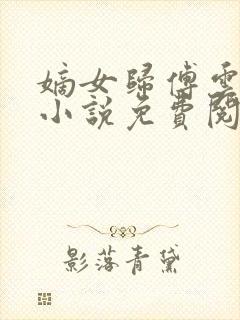 嫡女歸傅雲
小說免費閱
影落青黛